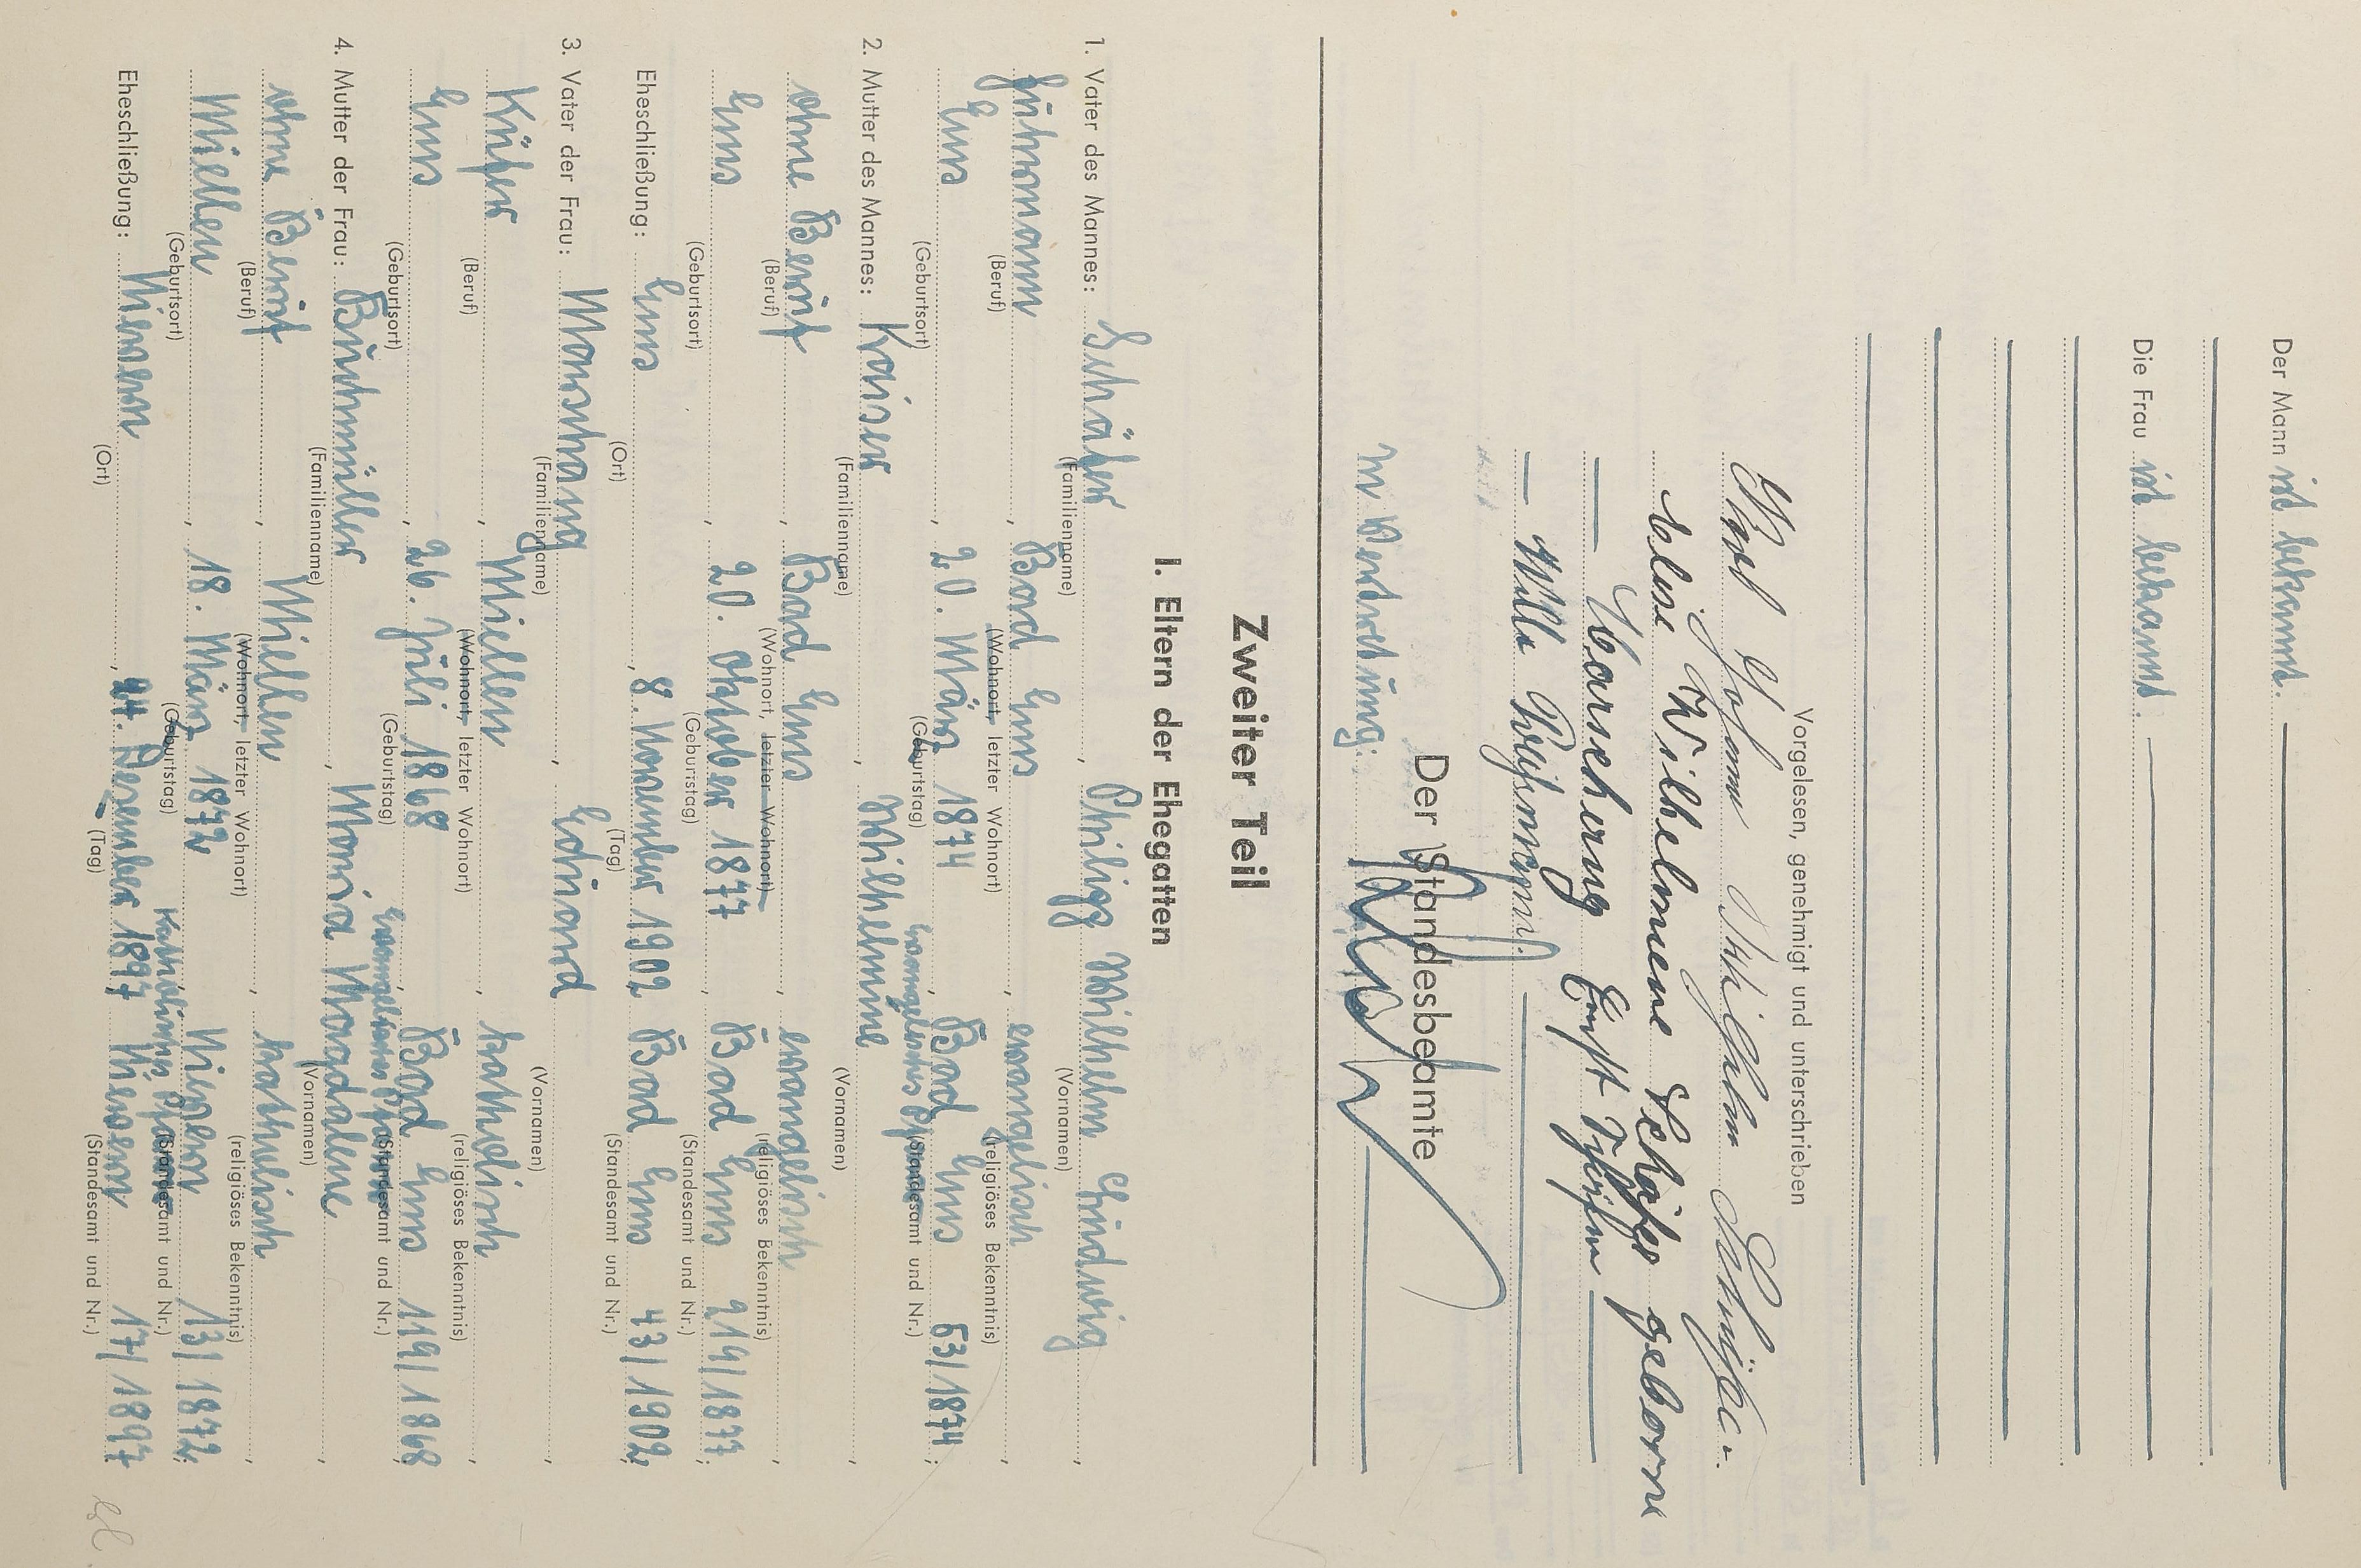 Der Mann ist bekannt.
Die Frau ist bekannt.
Vorgelesen, genehmigt und unterschrieben
Johann Wilhelm
Luise Wilhelmine Schäfer geborne
Ernst
Willi
Der Standesbeamte
In Vertretung:
Zweiter Teil
I. Eltern der Ehegatten
1. Vater des Mannes: Schäfer, Philipp Wilhelm Ludwig,
(Familienname) (Vornamen)
Fuhrmann, Bad Ems, evangelisch,
(Beruf) (Wohnort, letzter Wohnort) (religiöses Bekenntnis)
Ems, 20. März 1874, Bad Ems 53/1874;
(Geburtsort) (Geburtstag) (Standesamt und Nr.)
2. Mutter des Mannes: Kaiser, Wilhelmine,
(Familienname) (Vornamen)
ohne Beruf, Bad Ems, evangelisch,
(Beruf) (Wohnort, letzter Wohnort) (religiöses Bekenntnis)
Ems, 20. Oktober 1877, Bad Ems 219/1877;
(Geburtsort) (Geburtstag) (Standesamt und Nr.)
Eheschließung: Ems, 8. November 1902 Bad Ems 43/1902;
(Ort) (Tag) (Standesamt und Nr.)
3. Vater der Frau: Marschang, Eduard,
(Familienname) (Vornamen)
Küfer, Miellen, katholisch,
(Beruf) (Wohnort, letzter Wohnort) (religiöses Bekenntnis)
Ems, 26. Juli 1868, Bad Ems 119/1868;
(Geburtsort) (Geburtstag) (Standesamt und Nr.)
4. Mutter der Frau: Buchmüller, Maria Magdalene,
(Familienname) (Vornamen)
ohne Beruf, Miellen, katholisch,
(Beruf) (Wohnort, letzter Wohnort) (religiöses Bekenntnis)
Miellen, 18. März 1872, Nievern 13/1872;
(Geburtsort) (Geburtstag) (Standesamt und Nr.)
Eheschließung: Nievern, Dezember 1897 Nievern 17/1897
(Ort) (Tag) (Standesamt und Nr.)